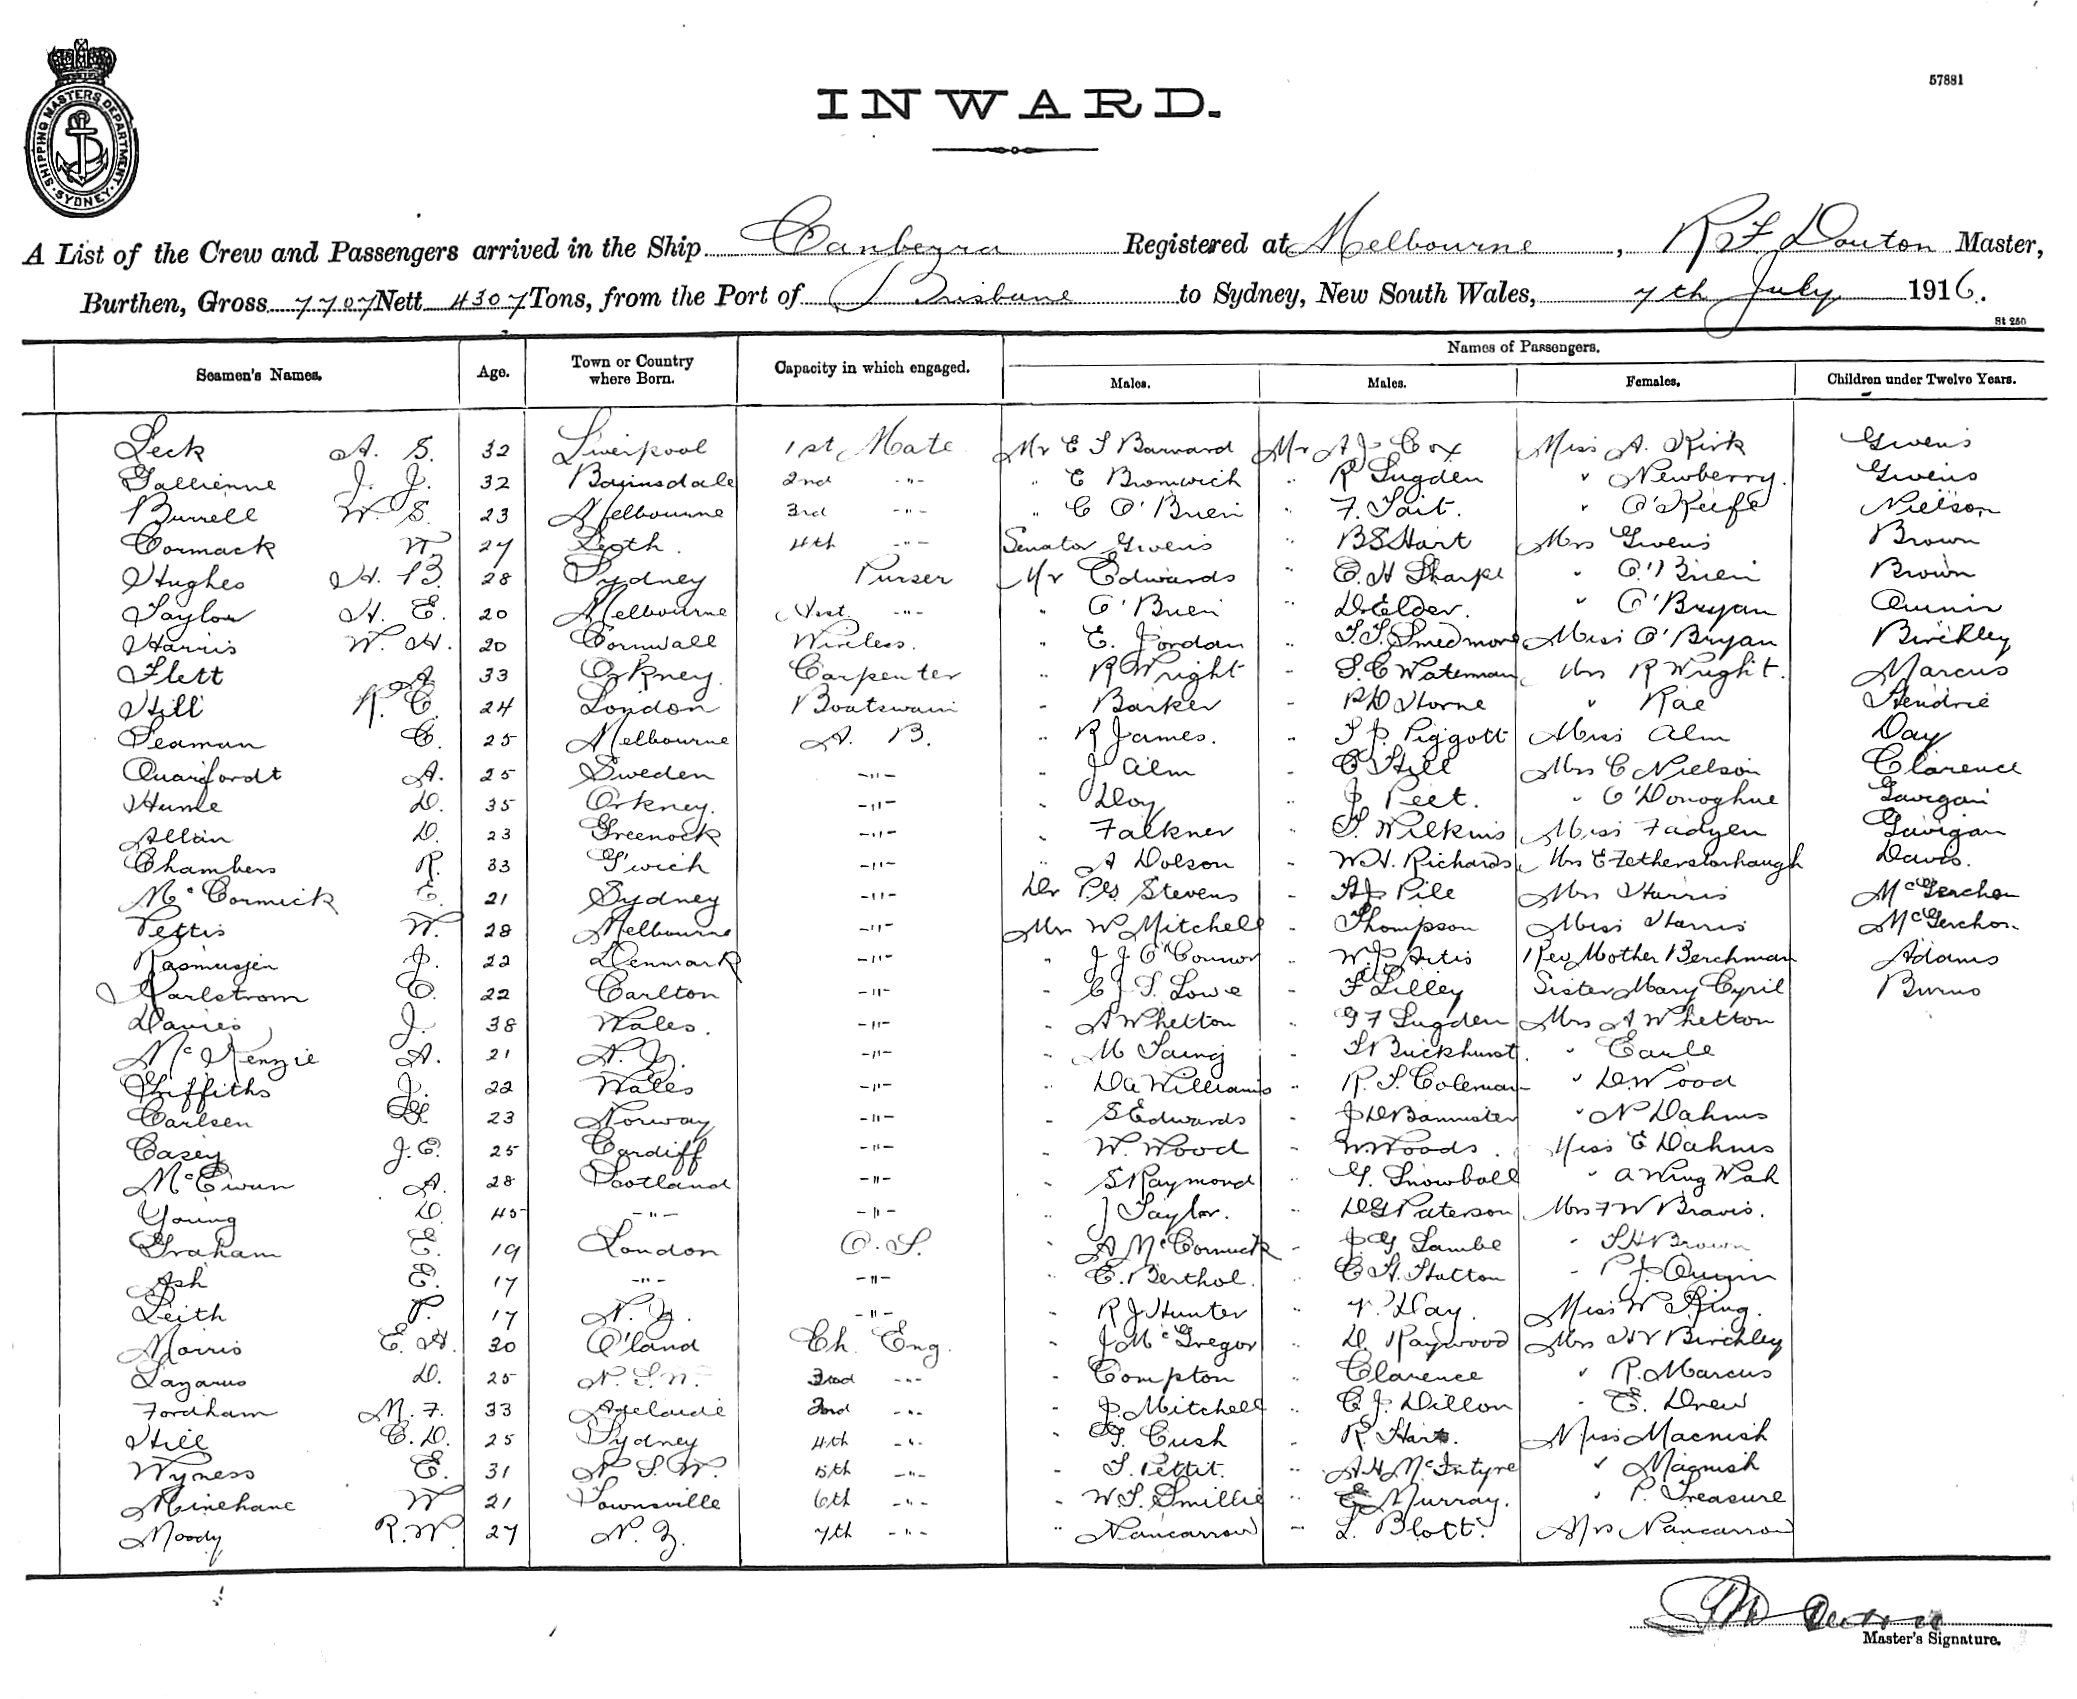 SHIPPING MASTERS DEPARTMENT · SYDNEY ·
57881
INWARD.
A List of the Crew and Passengers arrived in the Ship Canberra Registered at Melbourne, Master,
Burthen, Gross 7707 Nett 4307 Tons, from the Port of Brisbane to Sydney, New South Wales, 7th July 1916.
St 250
Names of Passengers.
Seamen's Names. Age. Town or Country where Born. Capacity in which engaged. Males. Males. Females. Children under Twelve Years.
Leck A. S. 32 Liverpool 1st Mate Mr E S Barnard Mr A J Cox Miss A. Kirk Givens
Gallienne J. J. 32 Bairnsdale 2nd -"- " E Bromwich " R Sugden " Newberry. Givens
Burrell W. S. 23 Melbourne 3rd -"- " C O'Brien " F. Tait. " O'Keefe Nielson
Cormack W. 27 Leith. 4th -"- Senator Givens " B S Hart Mrs Givens Brown
Hughes H. B. 28 Sydney Purser Mr Edwards " C. H Sharpe " O'Brien Brown
Taylor H. E. 20 Melbourne Asst. -"- " O'Brien " D Elder. " O'Bryan Quinn
Harris W. H. 20 Cornwall Wireless. " E. Jordan " Miss O'Bryan Birchley
Flett A 33 Orkney. Carpenter " R Wright " S. C Waterman Mrs R Wright. Marcus
Hill R. C. 24 London Boatswain " Barker " P D Horne " Rae Hendrie
Seaman C. 25 Melbourne A. B. " R James. " S. P. Piggott Miss Alm Day
Quarfordt A. 25 Sweden -"- " J Alm " C Hill Mrs C Nielson Clarence
Hume D. 35 Orkney. -"- " Doy " J. Peet. " O'Donoghue Gavigan
Allan D. 23 Greenock -"- " Falkner " S. Wilkins Miss Fadyen Gavigan
Chambers R. 33 G'wich -"- " A Dolson " W. H. Richards Mrs E Fetherstonhaugh Davis.
McCormick E. 21 Sydney -"- Dr Stevens " Pile Mrs Harris McGerchon
Pettis W. 28 Melbourne -"- Mr W Mitchell " Thompson Miss Harris McGerchon
Rasmussen J. 22 Denmark -"- " J J O'Connor " Rev Mother Berchman Adams
Karlstrom C. 22 Carlton -"- " C J. S. Lowe " F Lilley Sister Mary Cyril Burns
Davies J. 38 Wales. -"- " A Whetton " G F Sugden Mrs A Whetton
McKenzie A. 21 N. Z. -"- " M " Buckhurst. " Earle
Griffiths J. 22 Wales -"- " D A Williams " R. S. Coleman " D Wood
Carlsen 23 Norway -"- " S Edwards " J D Bannister " N Dahms
Casey J. E. 25 Cardiff -"- " W. Wood " W Woods. Miss E Dahms
McEwan A. 28 Scotland -"- " S Raymond " G. Snowball " A Wing Wah
Young D. 45 -"- -"- " J Taylor. " D G Paterson Mrs F W Bravis.
Graham E. 19 London O. S. " A McCormick " J. G Lambe " S H Brown
Ash E. 17 -"- -"- " E. Berthol. " C H. Hatton "
Leith P. 17 N. Z. -"- " R J Hunter " Day. Miss W King.
Morris E. A. 30 Q'land Ch. Eng. " J McGregor " D. Raywood Mrs H V Birchley
Lazarus D. 25 N. S. W. -"- " Compton " Clarence " R. Marcus
Fordham M. F. 33 Adelaide -"- " J. Mitchell " C. J. Dillon " E. Drew
Hill C. D. 25 Sydney 4th -"- " Cush " R. Hart. Miss Macnish
Wyness E. 31 N. S. W. 5th -"- " S. Pettit. " A H McIntyre " Macnish
Minehane W 21 Townsville 6th -"- " W. S. Smillie " E Murray. " P. Treasure
Moody R. W. 27 N. Z. 7th -"- " Nancarrow " L. Blott. Mrs Nancarrow
Master's Signature.